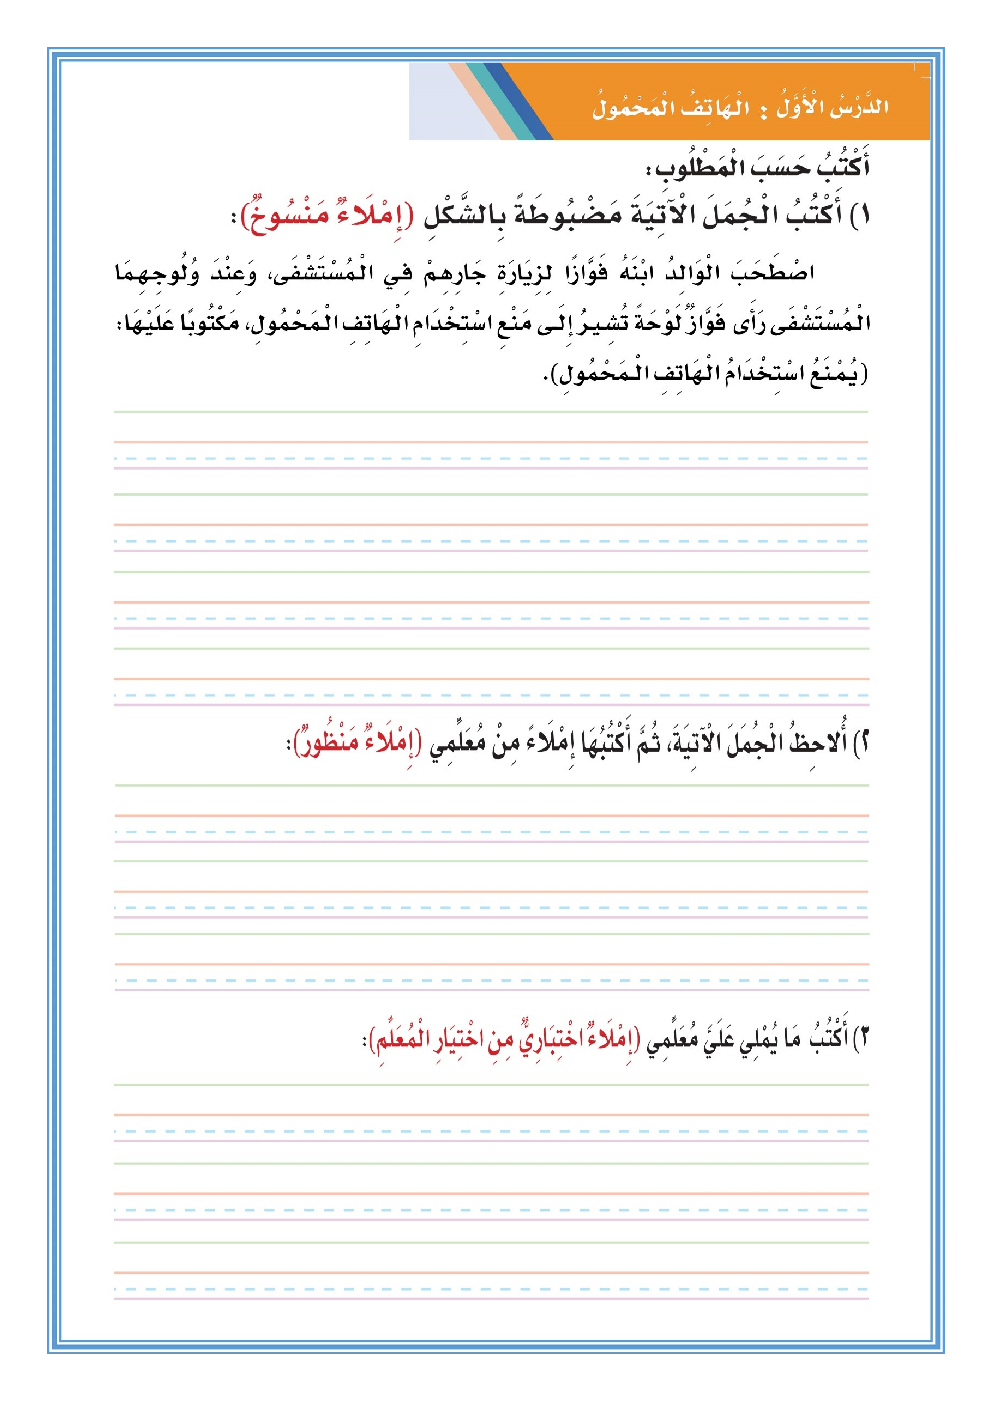 الدَّرْسُ الْأَوَّلُ : الْهَاتِفُ الْمَحْمُولُ
أَكْتُبُ حَسَبَ الْمَطْلُوبِ:
١) أَكْتُبُ الْجُمَلَ الْآتِيَةَ مَضْبُوطَةً بِالشَّكْلِ (إِمْلَاءٌ مَنْسُوخٌ):
اصْطَحَبَ الْوَالِدُ ابْنَهُ فَوَّازًا لِزِيَارَةِ جَارِهِمْ فِي الْمُسْتَشْفَى، وَعِنْدَ وُلُوجِهِمَا
الْمُسْتَشْفَى رَأَى فَوَّازٌ لَوْحَةً تُشِيرُ إِلَى مَنْعِ اسْتِخْدَامِ الْهَاتِفِ الْمَحْمُولِ، مَكْتُوبًا عَلَيْهَا:
(يُمْنَعُ اسْتِخْدَامُ الْهَاتِفِ الْمَحْمُولِ).
٢) أُلاحِظُ الْجُمَلَ الْآتِيَةَ، ثُمَّ أَكْتُبُهَا إِمْلَاءً مِنْ مُعَلِّمِي (إِمْلَاءٌ مَنْظُورٌ):
٣) أَكْتُبُ مَا يُمْلِي عَلَيَّ مُعَلِّمِي (إِمْلَاءٌ اخْتِبَارِيٌّ مِنِ اخْتِيَارِ الْمُعَلِّمِ):